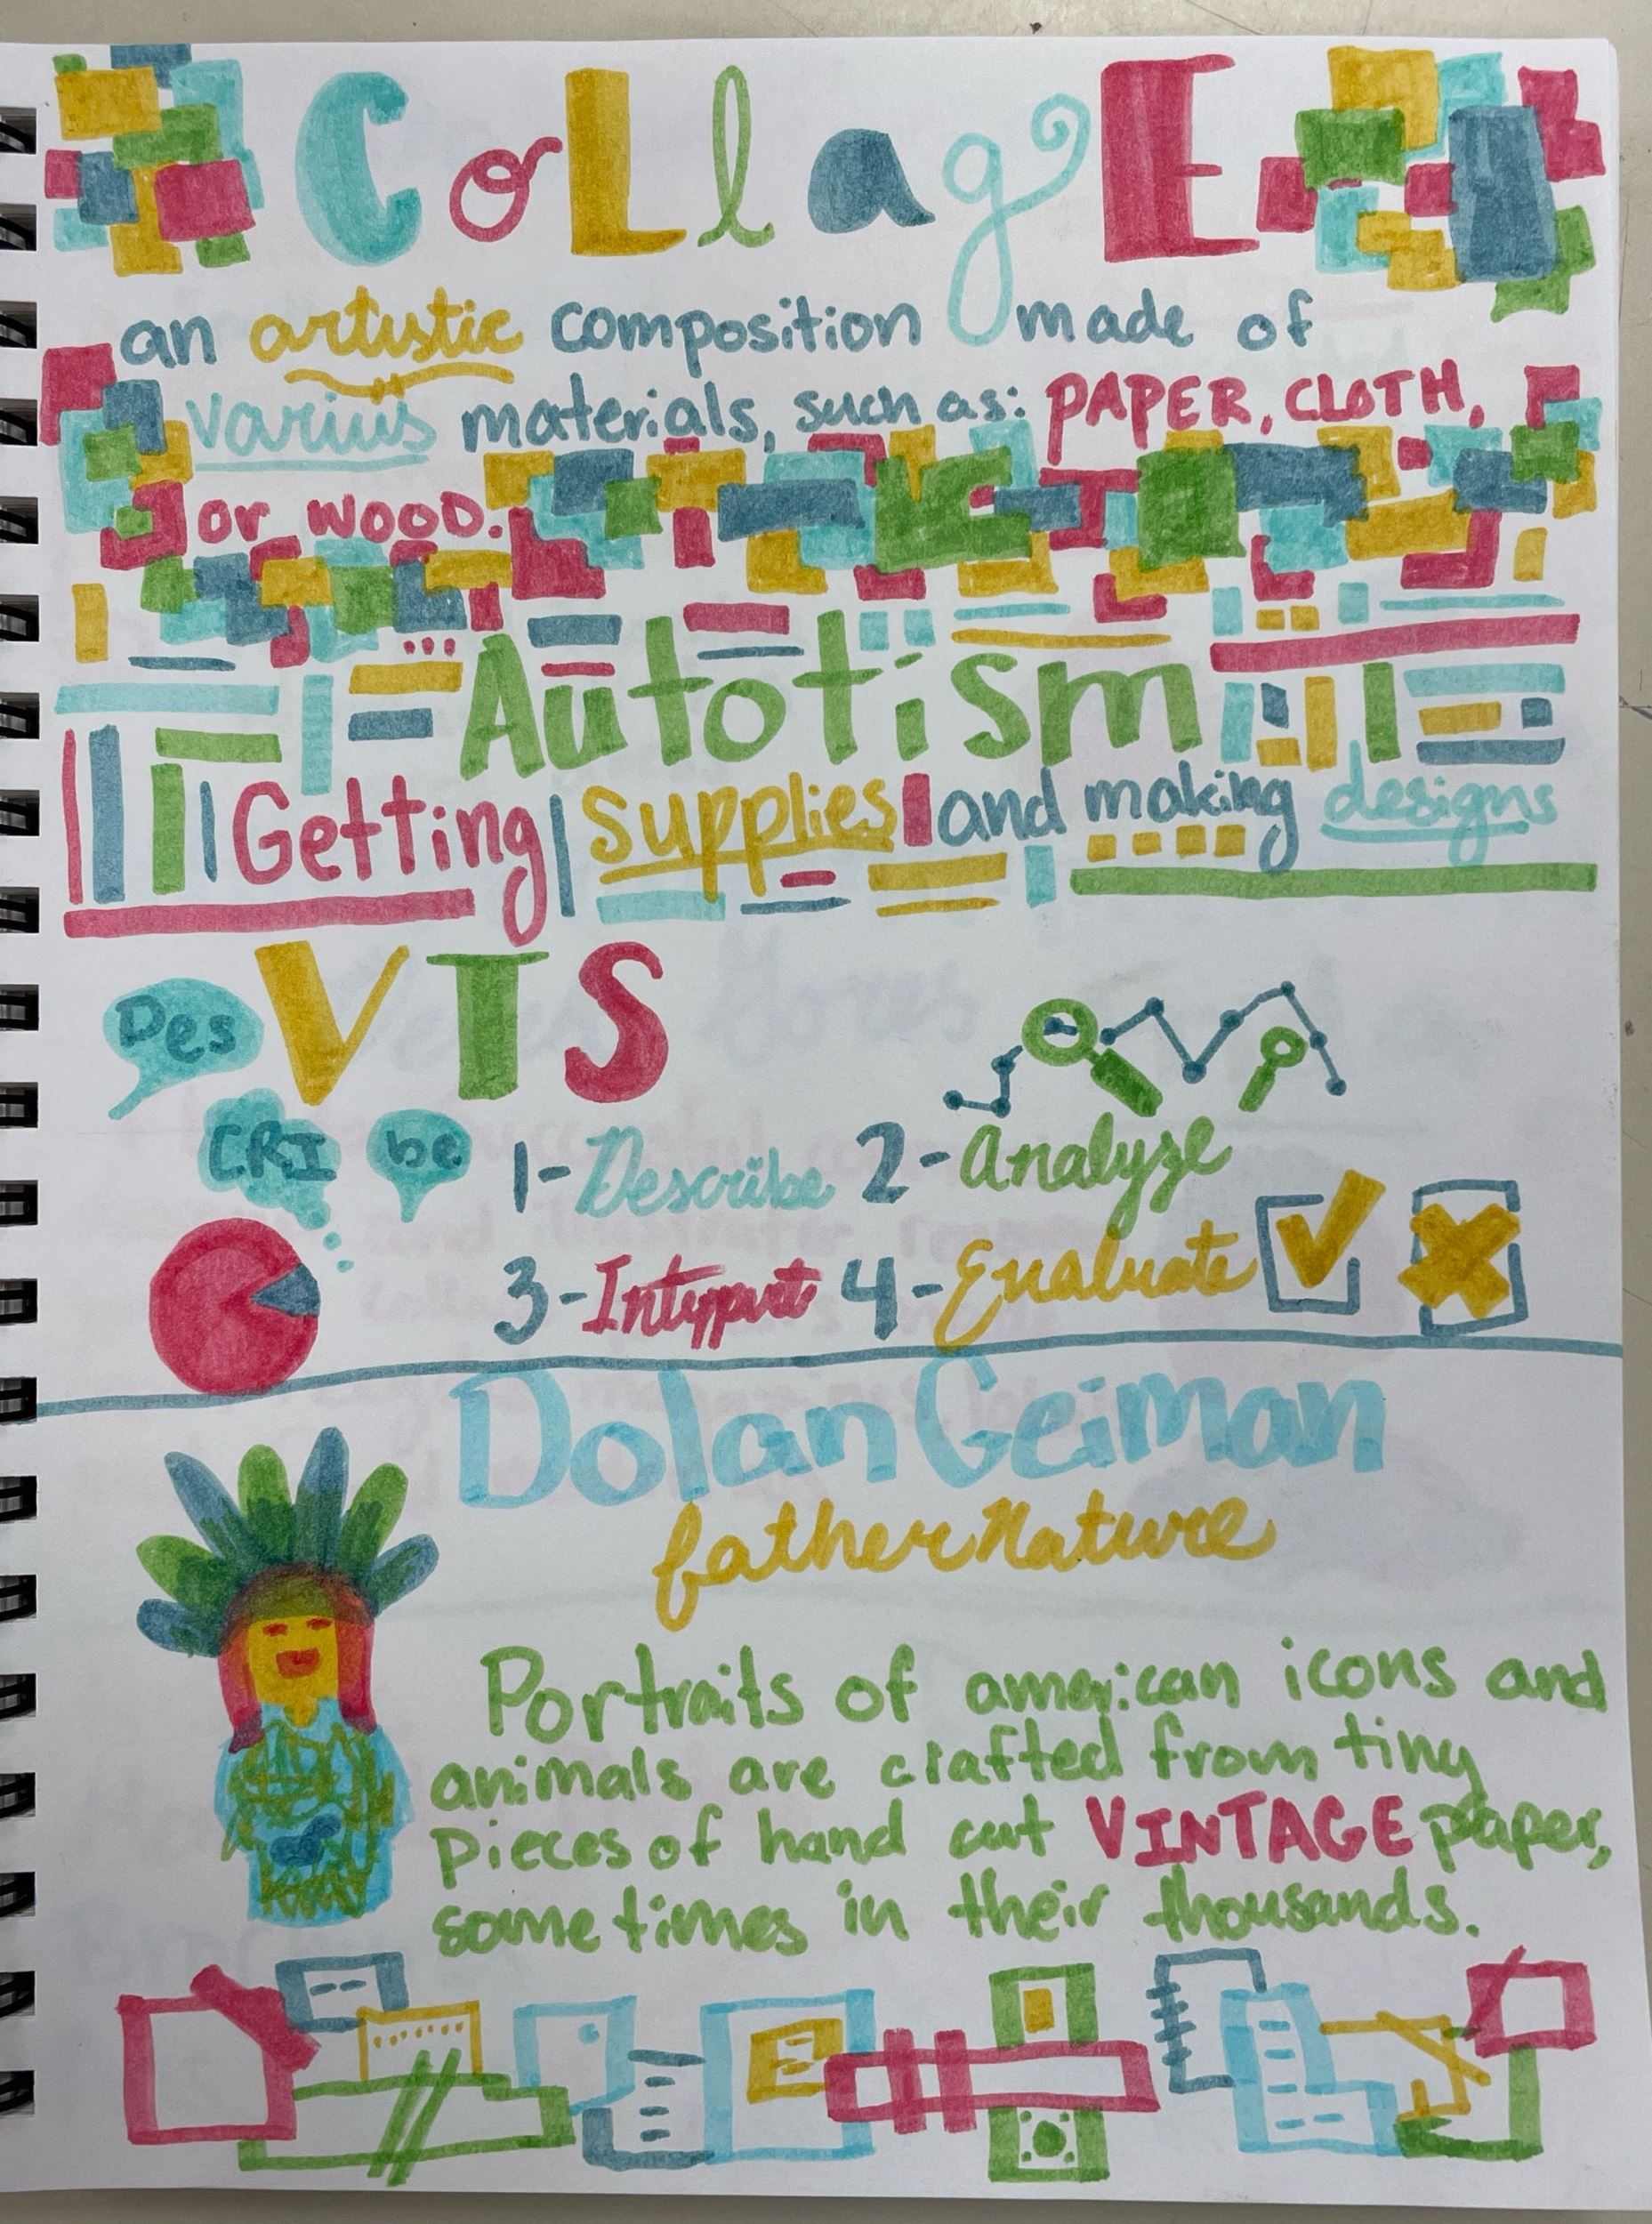 CollagE
an artistic composition made of
varius materials, such as: PAPER, CLOTH,
or WOOD.
Autotism
Getting supplies and making designs
VTS
Des
CRI be
1-Describe 2-Analyze
3-Intyppert 4-Evaluate
Dolan Geiman
father nature
Portraits of american icons and
animals are crafted from tiny
pieces of hand cut VINTAGE paper,
sometimes in their thousands.